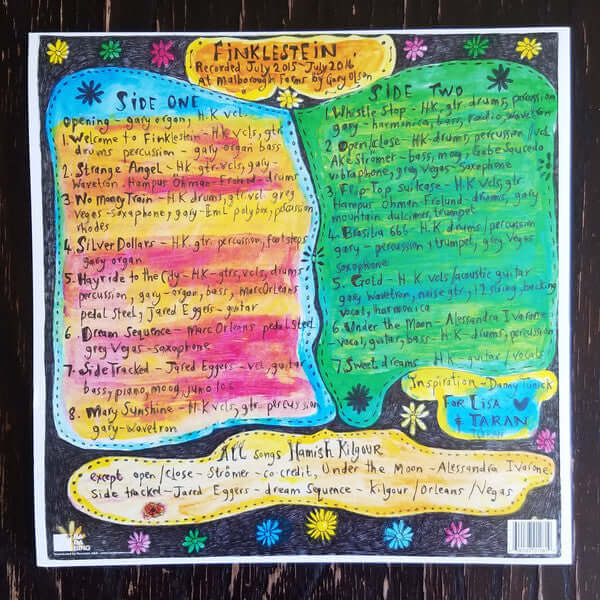 FINKLESTEIN
Recorded July 2015 - July 2016
At Malborough Farms by Gary Olson
SIDE ONE
Opening - gary organ, H.K vcl.
1. Welcome to Finklestein - HK vcls, gtr
drums percussion - gary organ bass
2. Strange Angel - HK - gtr-vcls, gary-
Wavetron. Hampus Öhman-Frolund - drums
3. No Money Train - HK drums, gtr.vcl greg
Vegas - saxophone, gary - Eml polybox, percussion
rhodes
4. Silver Dollars - H.K gtr. percussion, footsteps
gary organ
5. Hayride to the City - H.K - gtrs, vcls, drums
percussion, gary - organ, bass, Marc Orleans
pedal steel, Jared Eggers - guitar
6. Dream Sequence - Marc Orleans pedal steel
greg Vegas - saxophone
7. Side Tracked - Jared Eggers - vcl, guitar
bass, piano, moog, juno 106
8. Mary Sunshine - H.K vcls, gtr percussion
gary - wavetron
SIDE TWO
1. Whistle Stop - H.K, gtr, drums, percussion
gary - harmonica, bass, radio, wavetron
2. Open/close - H.K - drums, percussion / vcl
Ake Strömer - bass, moog, Gabe Saucedo
vibraphone, greg Vegas - saxophone
3. Flip-Top suitcase - H.K vcls, gtr
Hampus Öhman Frolund - drums, gary
mountain dulcimer, trumpet
4. Brasilia 666 - H.K drums / percussion
gary - percussion, trumpet, greg Vegas
saxophone
5. Gold - H.K vcls / acoustic guitar
gary wavetron, noise gtr, 12 string, backing
vocal, harmonica
6. Under the Moon - Alessandra Ivarone
-vocal, guitar, bass - H.K - drums, percussion
7. Sweet dreams H.K - guitar / vocals
Inspiration - Danny
FOR LISA
& TARAN
ALL songs Hamish Kilgour
except open/close - Strömer - co-credit, Under the Moon - Alessandra Ivarone
Side tracked - Jared Eggers - dream Sequence - Kilgour / Orleans / Vegas